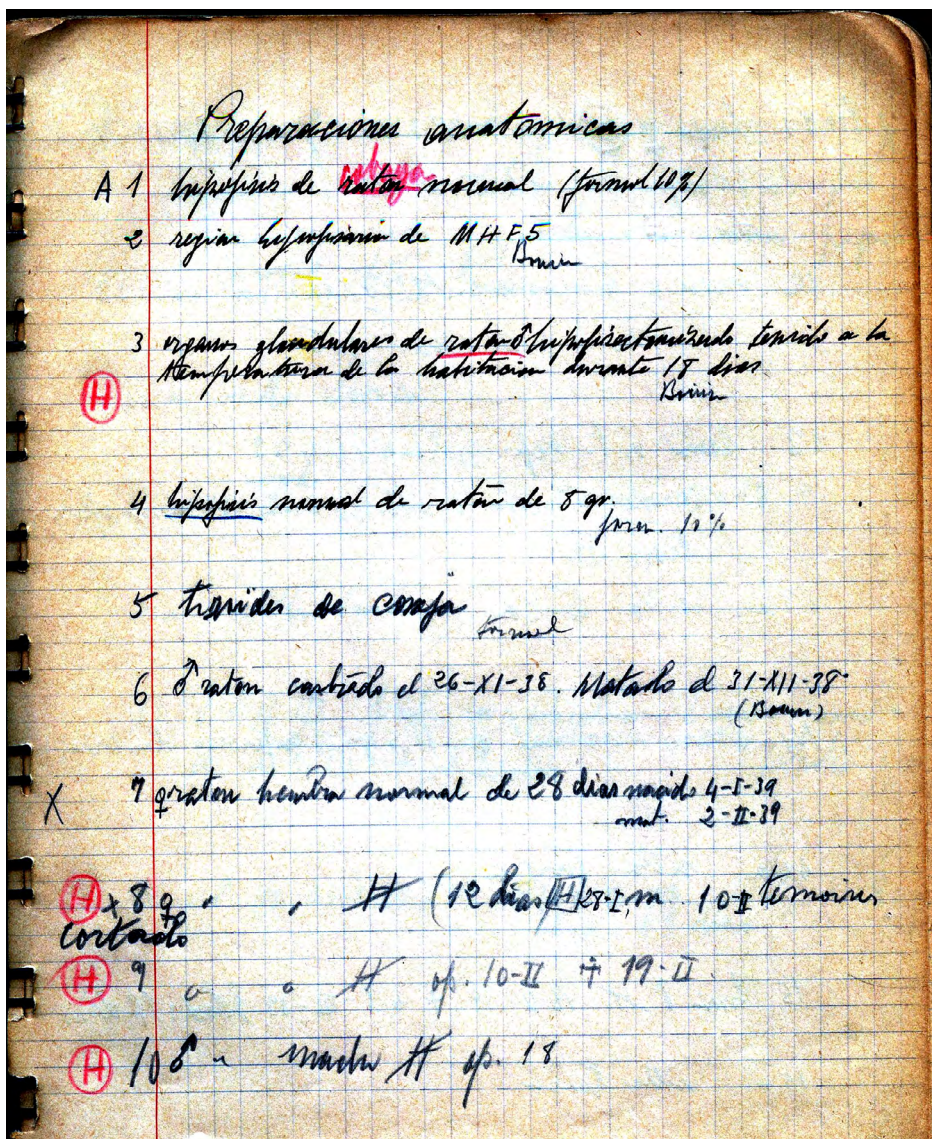 Preparaciones anatomicas
cobaya
A 1 hipofisis de raton normal (formol 10%)
2 region hipofisaria de MHF5
Bouin
3 organos glandulares de raton ♂ hipofisectomizado tenido a la
temperatura de la habitacion durante 18 dias
Bouin
H
4 hipofisis normal de raton de 8 gr.
form. 10%
5 tiroides de coneja
formol
6 ♂ raton castrado el 26-XI-38. Matado el 31-XII-38
(Bouin)
X 7 ♀ raton hembra normal de 28 dias nacido 4-I-39
mat. 2-II-39
H x 8 ♀ " " H (12 dias H 28-I, m. 10-II temoins
cortado
H 9 " " H op. 10-II † 19-II.
H 10 ♂ " macho H op. 18